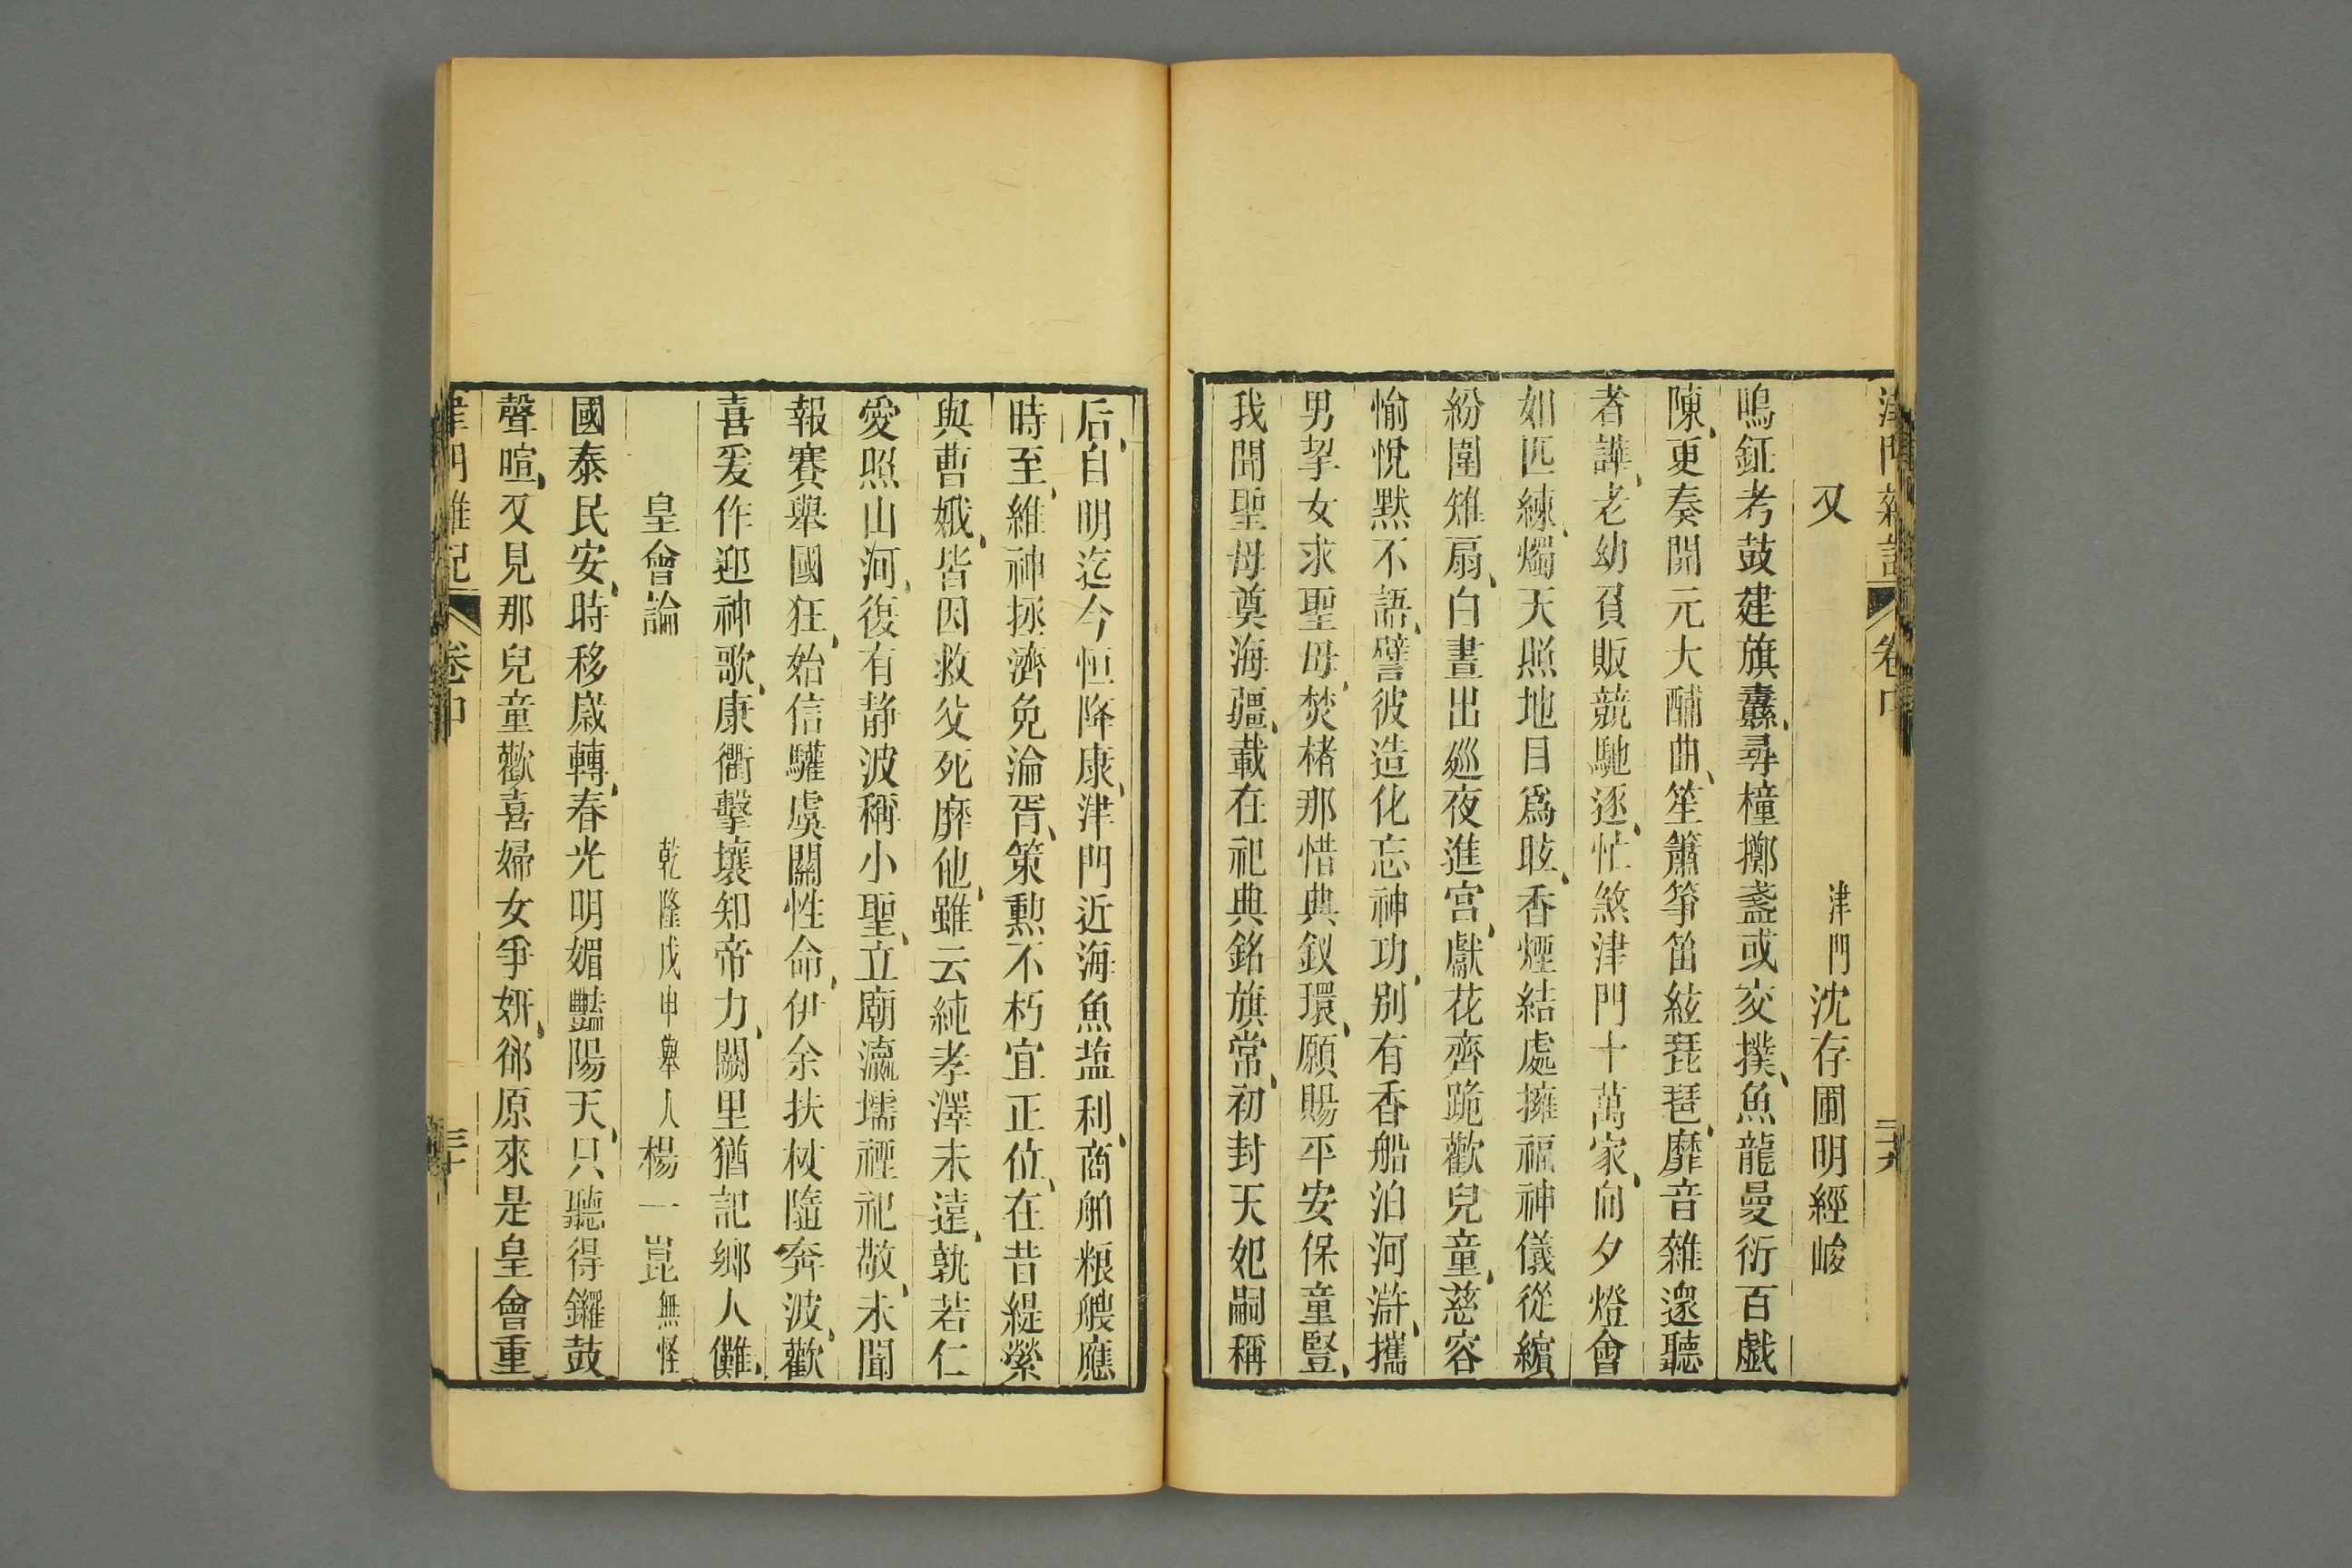 津門雜記 卷中 二十九
又 津門沈存圃明經峻
鳴鉦考鼓建旗纛、尋橦擲盞或交撲、魚龍曼衍百戲
陳、更奏開元大酺曲、笙簫箏笛絃琵琶、靡音雜遝聽
者譁、老幼負販競馳逐、忙煞津門十萬家、向夕燈會
如匹練、燭天照地目爲眩、香煙結處擁福神儀從繽
紛圍雉扇、白晝出廵夜進宮、獻花齊跪歡兒童、慈容
愉悅默不語、譬彼造化忘神功、別有香船泊河滸、攜
男挈女求聖母、焚楮那惜典釵環、願賜平安保童豎、
我聞聖母奠海疆、載在祀典銘旗常、初封天妃嗣稱
后、自明迄今恒降康、津門近海魚盐利、商舶粮艘應
時至、維神拯濟免淪胥、策勲不朽宜正位、在昔緹縈
與曹娥、皆因救父死靡他、雖云純孝澤未遠、孰若仁
愛照山河、復有静波稱小聖、立廟瀛壖禋祀敬、未聞
報賽舉國狂、始信驩虞關性命、伊余扶杖隨奔波、歡
喜爰作迎神歌、康衢擊壤知帝力、闕里猶記鄉人儺、
皇會論 乾隆戊申舉人楊一崑無怪
國泰民安、時移歲轉、春光明媚豔陽天、只聽得鑼鼓
聲喧、又見那兒童歡喜婦女爭妍、卻原來是皇會重
津門雜記 卷中 三十